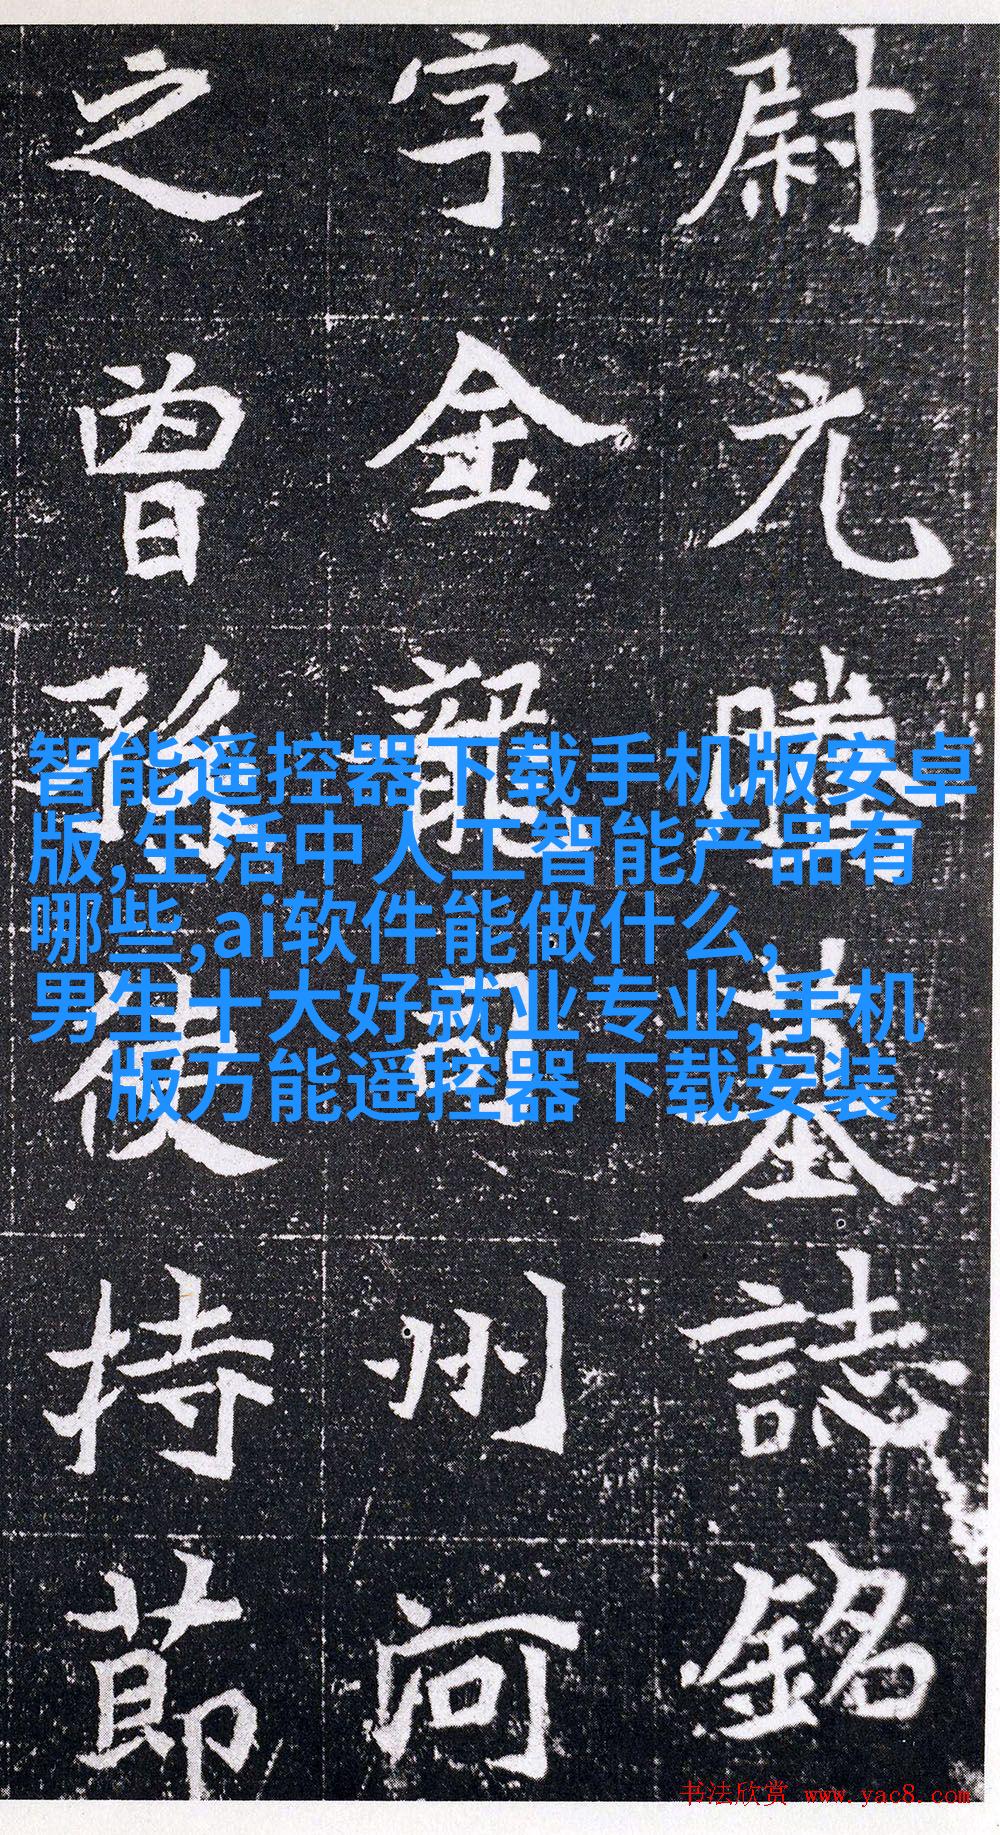 尉元騰墓誌銘
字金龍司州河
之曾孫使持節
智能遥控器下载手机版安卓
版,生活中人工智能产品有
哪些,ai软件能做什么,
男生十大好就业专业,手机
版万能遥控器下载安装
书法欣赏 www.yac8.com